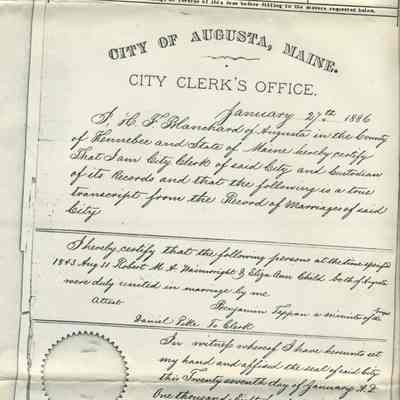 of records of this fear before filling in the answers requested below.
CITY OF AUGUSTA, MAINE.
CITY CLERK'S OFFICE.
January 27th 1886
I, H. F. Blanchard of Augusta in the County
of Kennebec and State of Maine hereby certify
That I am City Clerk of said City and Custodian
of its Records and that the following is a true
transcript from the Record of Marriages of said
City
I hereby certify that the following persons at the time specified
1843 Aug 31 Robert M. A. Wainwright & Eliza Ann Child both of Augusta
were duly united in marriage by me
Benjamin Tappan a minister of the
Attest Daniel Pike To Clerk
In witness whereof I have hereunto set
my hand and affixed the seal of said City
this Twenty seventh day of January A.D.
One thousand